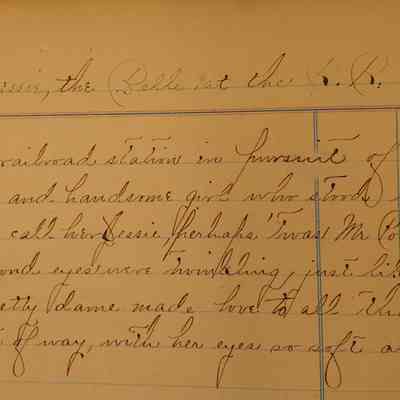 essie, the Belle at the R. R.
railroad station in pursuit of
and handsome girl who stood
call her Jessie, perhaps 'Twas Mr Po
ond eyes were twinkling, just li
etty dame made love to all th
of way, with her eyes so soft a